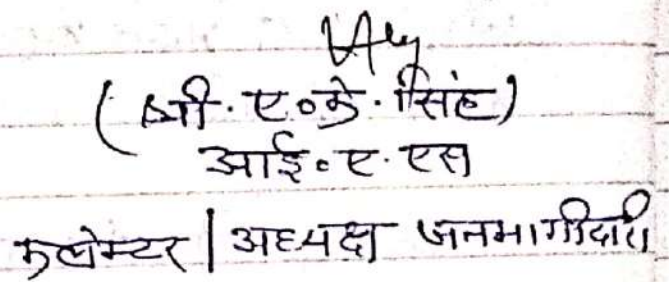 (श्री. ए०के. सिंह)
आई०ए.एस
कलेक्टर | अध्यक्ष जनभागीदारी